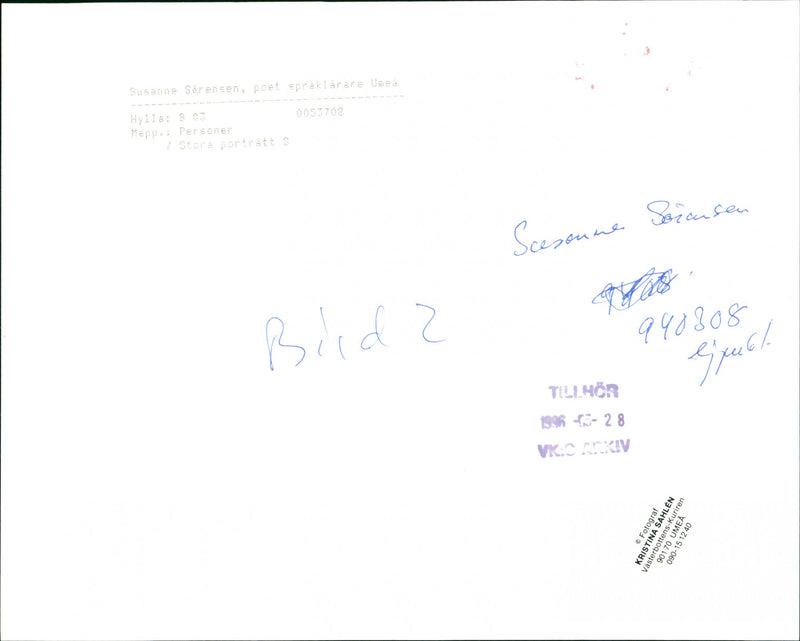 Susanne Sörensen, poet språklärare Umeå
Hylla: B 03 0053708
Mapp.: Personer
/ Stora porträtt S
Susanne Sörensen
940308
ej publ.
Bild 2
TILLHÖR
1996 -05- 28
VK:S ARKIV
© Fotograf
KRISTINA SAHLÉN
Västerbottens-Kuriren
90170 UMEÅ
090-15 12 40